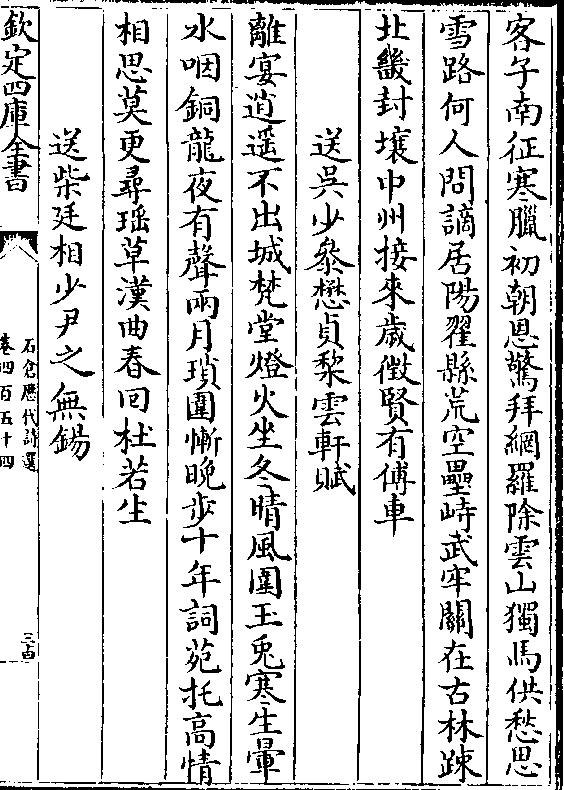 客子南征寒臘初朝恩驚拜網羅除雲山獨馬供愁思
雪路何人問謫居陽翟縣荒空壘峙武牢關在古林踈
北畿封壤中州接來歲徴賢有傳車
送吳少叅懋貞黎雲軒賦
離宴逍遥不出城梵堂燈火坐冬晴風圍玉兎寒生暈
水咽銅龍夜有聲兩月瑣圍慚晚步十年詞苑托高情
相思莫更尋瑶草漢曲春回杜若生
送柴廷相少尹之無錫
欽定四庫全書
石倉歴代詩選
卷四百五十四
三十四